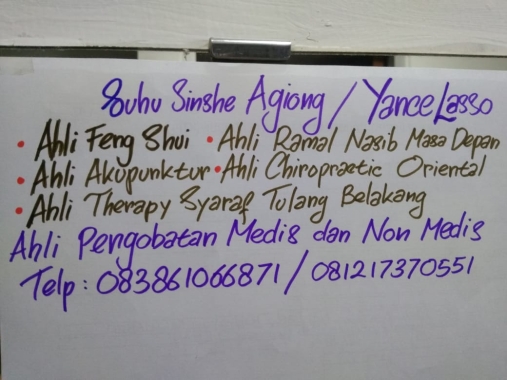 Suhu Sinshe Agiong / Yance Lasso
• Ahli Feng Shui • Ahli Ramal Nasib Masa Depan
• Ahli Akupunktur • Ahli Chiropractic Oriental
• Ahli Therapy Syaraf Tulang Belakang
Ahli Pengobatan Medis dan Non Medis
Telp : 083861066871 / 081217370551